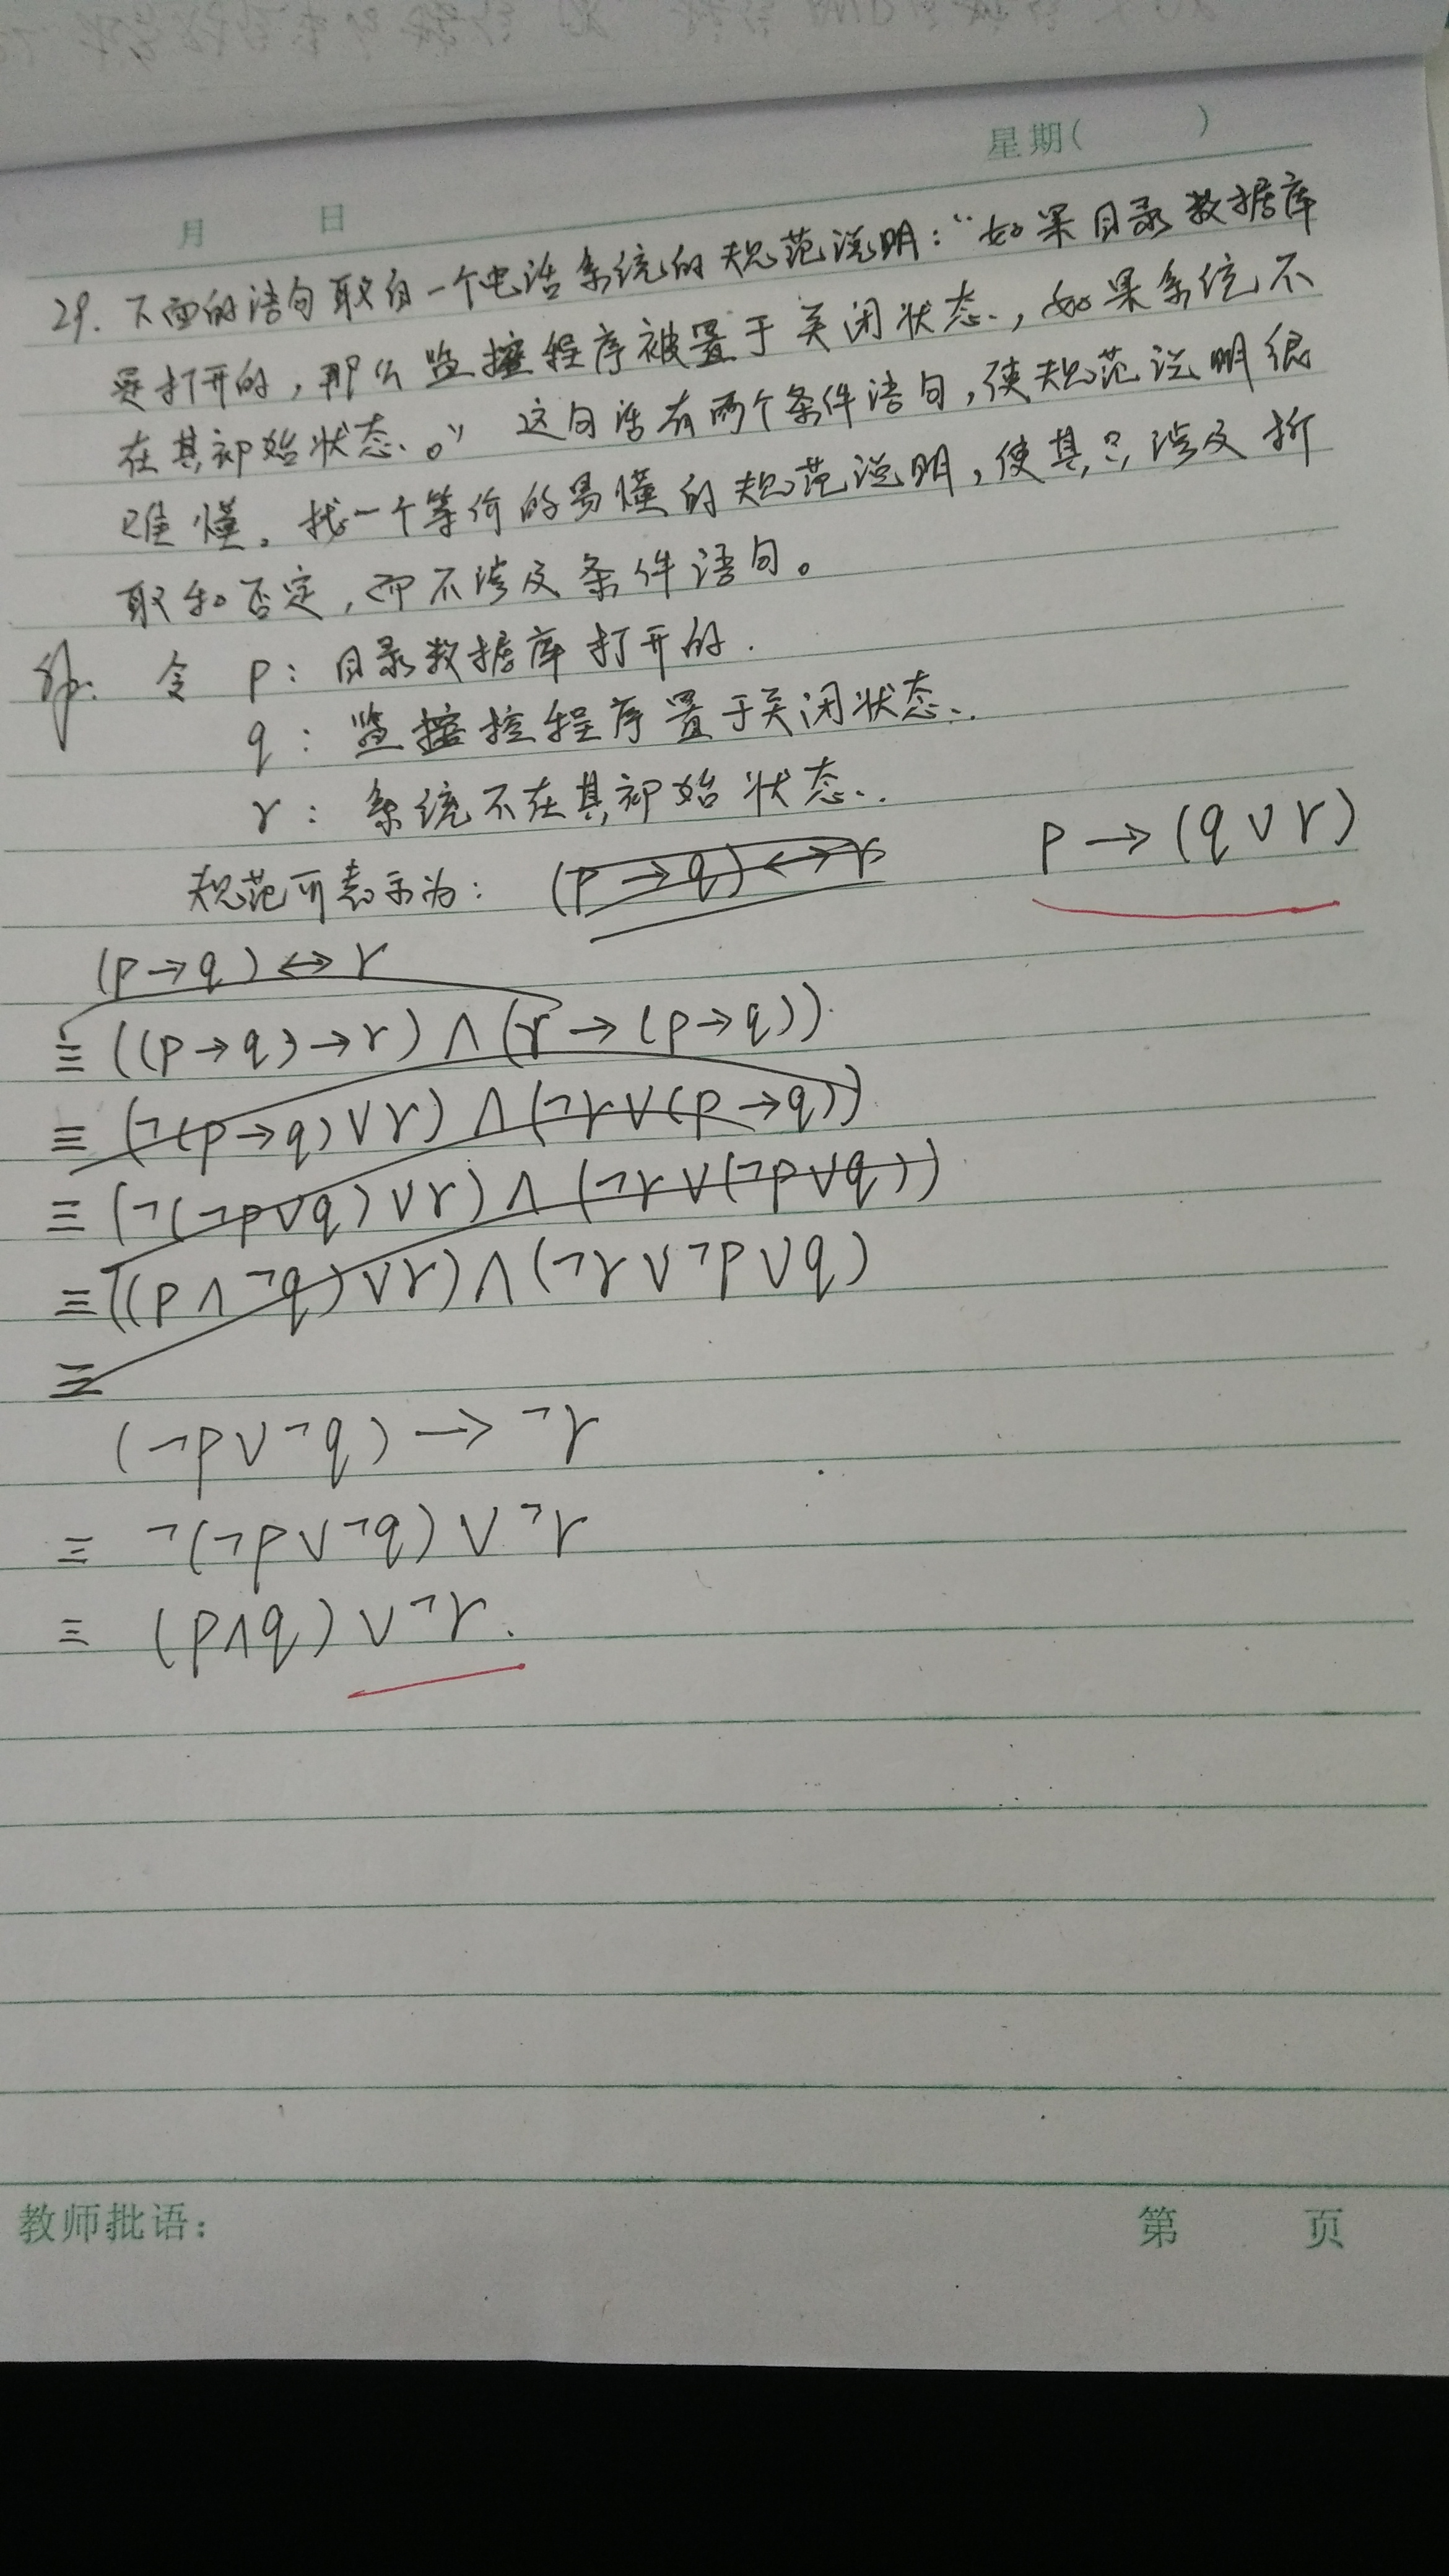 星期( )
月 日
29. 下面的语句取自一个电话系统的规范说明：“如果目录数据库
是打开的，那么监控程序被置于关闭状态，如果系统不
在其初始状态。” 这句话有两个条件语句，使规范说明很
难懂。找一个等价的易懂的规范说明，使其只涉及析
取和否定，而不涉及条件语句。
解： 令 p： 目录数据库打开的.
q： 监控程序置于关闭状态.
r： 系统不在其初始状态.
规范可表示为： (p→q)↔r p→(q∨r)
(p→q)↔r
≡ ((p→q)→r)∧(r→(p→q)).
≡ (¬(p→q)∨r)∧(¬r∨(p→q))
≡ (¬(¬p∨q)∨r)∧(¬r∨(¬p∨q))
≡ ((p∧¬q)∨r)∧(¬r∨¬p∨q)
≡
(¬p∨¬q)→¬r
≡ ¬(¬p∨¬q)∨¬r
≡ (p∧q)∨¬r.
教师批语： 第 页